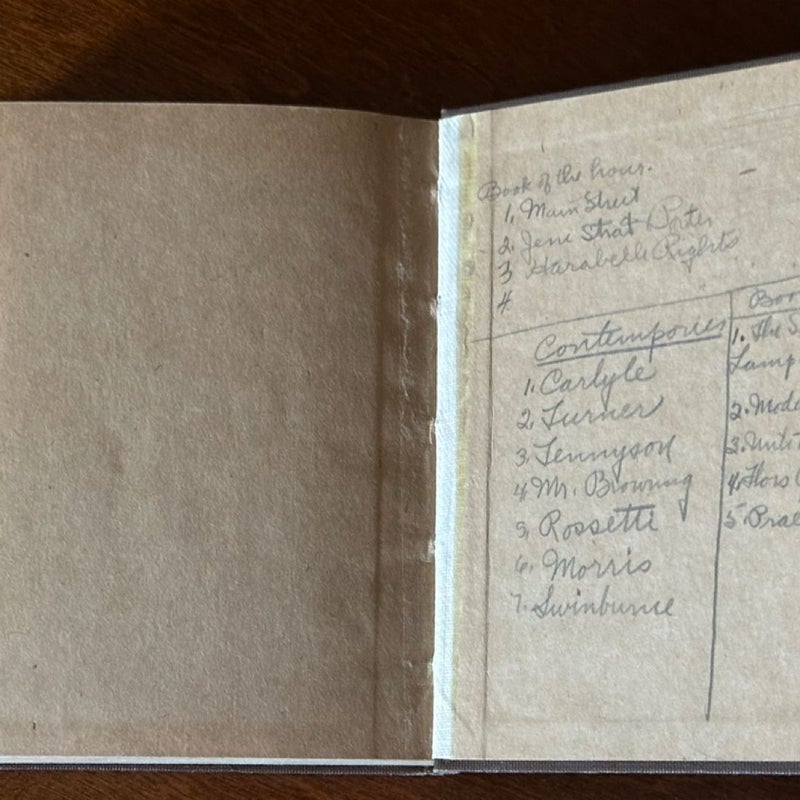 Book of the hour.
1. Main Street
2. Jene Strat Porter
3 Harabelle Rights
4
Contempories
1. Carlyle
2. Turner
3. Tennyson
4 Mr. Browning
5. Rossetti
6. Morris
7. Swinburne
Boo
1. The S
Lamp
2. Mode
3. Unto T
4. Fors C
5. Prae